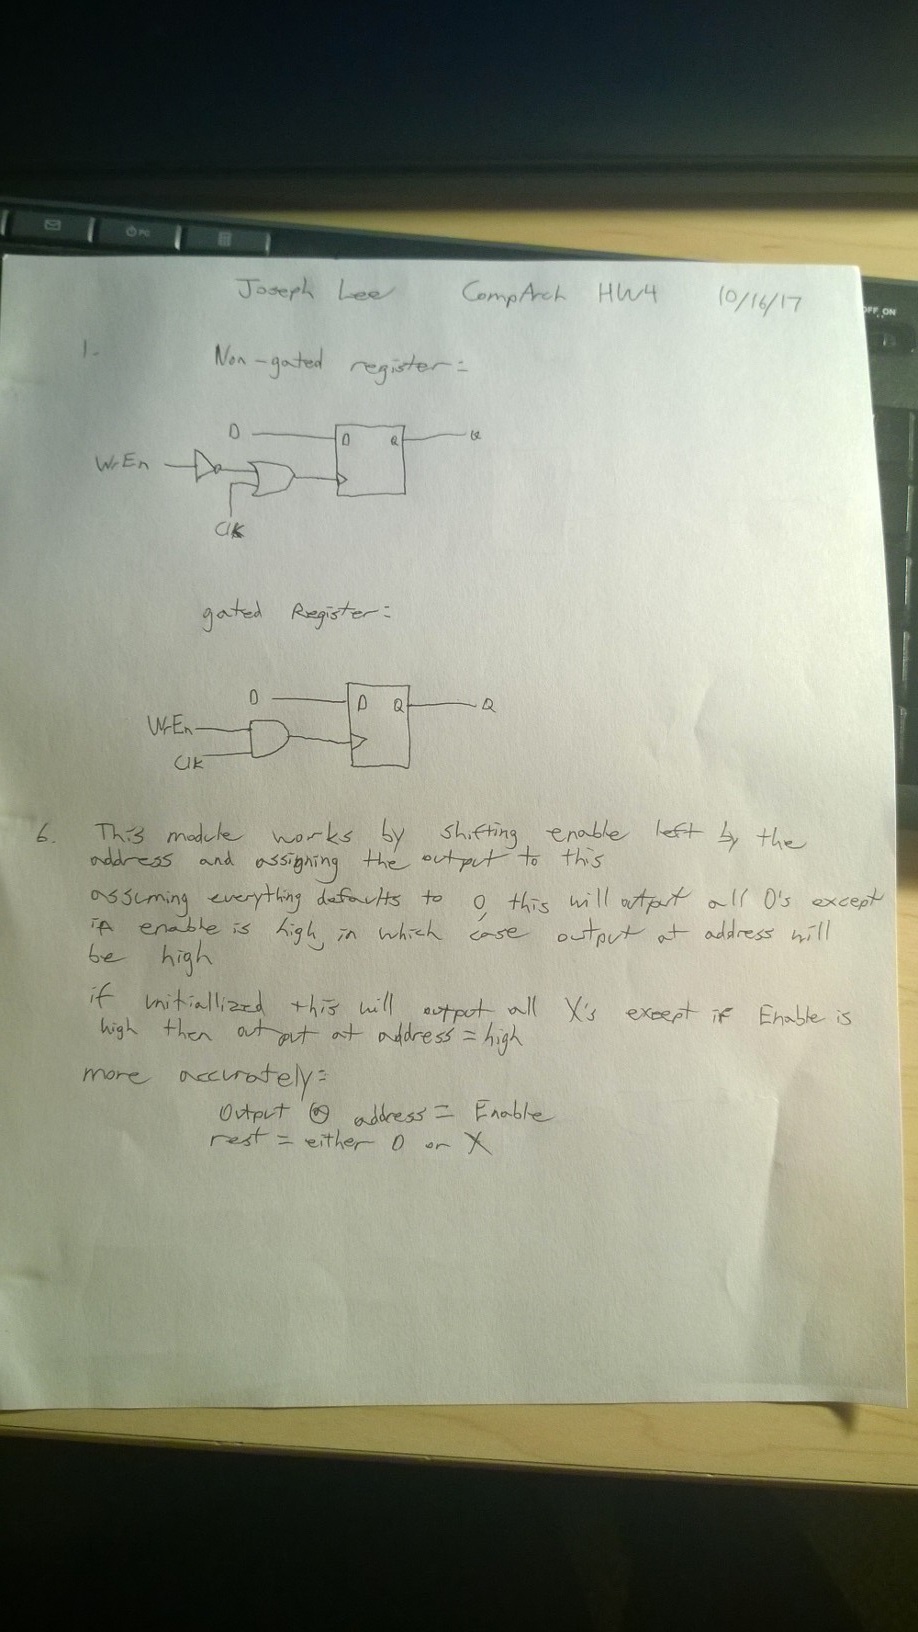 PC
OFF ON
Joseph Lee CompArch HW4 10/16/17
1.
Non-gated register:
D
D Q Q
WrEn
Clk
gated Register:
D
D Q Q
WrEn
Clk
6. This module works by shifting enable left by the
address and assigning the output to this
assuming everything defaults to 0, this will output all 0's except
if enable is high, in which case output at address will
be high
if unitiallized this will output all X's except if Enable is
high then output at address = high
more accurately:
Output @ address = Enable
rest = either 0 or X